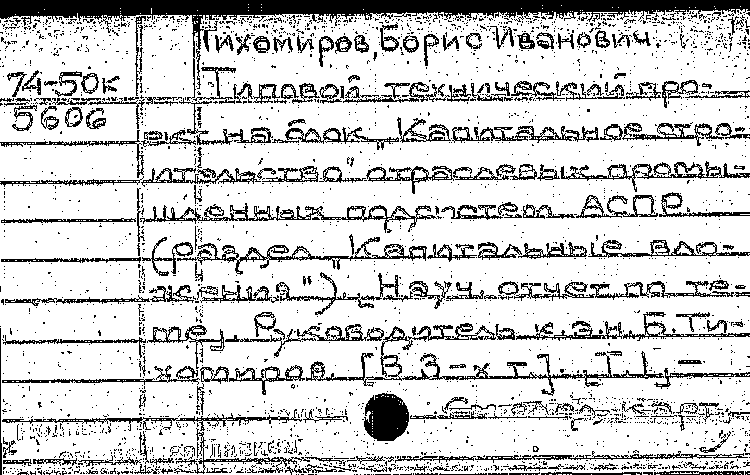 Тихомиров, Борис Иванович.
74-50к
5606
Типовой технический про-
ект на блок „Капитальное стро-
ительство" отраслевых промы-
шленных подсистем АСПР.
(раздел „Капитальные вло-
жения"). Науч. отчет по те-
ме]. Руководитель к.э.н. Б. Ти-
хомиров. [В 3-х т.]. Т. 1, –
карт.